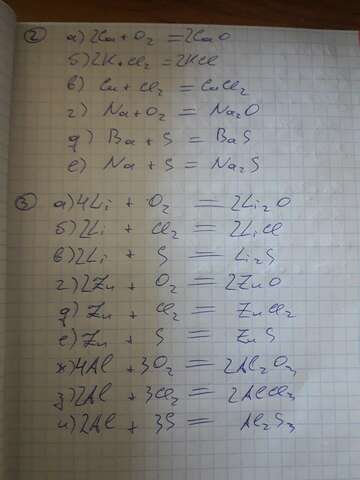 ② а) 2Ca + O₂ = 2CaO
б) 2K + Cl₂ = 2KCl
в) Cu + Cl₂ = CuCl₂
г) Na + O₂ = Na₂O
д) Ba + S = BaS
е) Na + S = Na₂S
③ а) 4Li + O₂ = 2Li₂O
б) 2Li + Cl₂ = 2LiCl
в) 2Li + S = Li₂S
г) 2Zn + O₂ = 2ZnO
д) Zn + Cl₂ = ZnCl₂
е) Zn + S = ZnS
ж) 4Al + 3O₂ = 2Al₂O₃
з) 2Al + 3Cl₂ = 2AlCl₃
и) 2Al + 3S = Al₂S₃